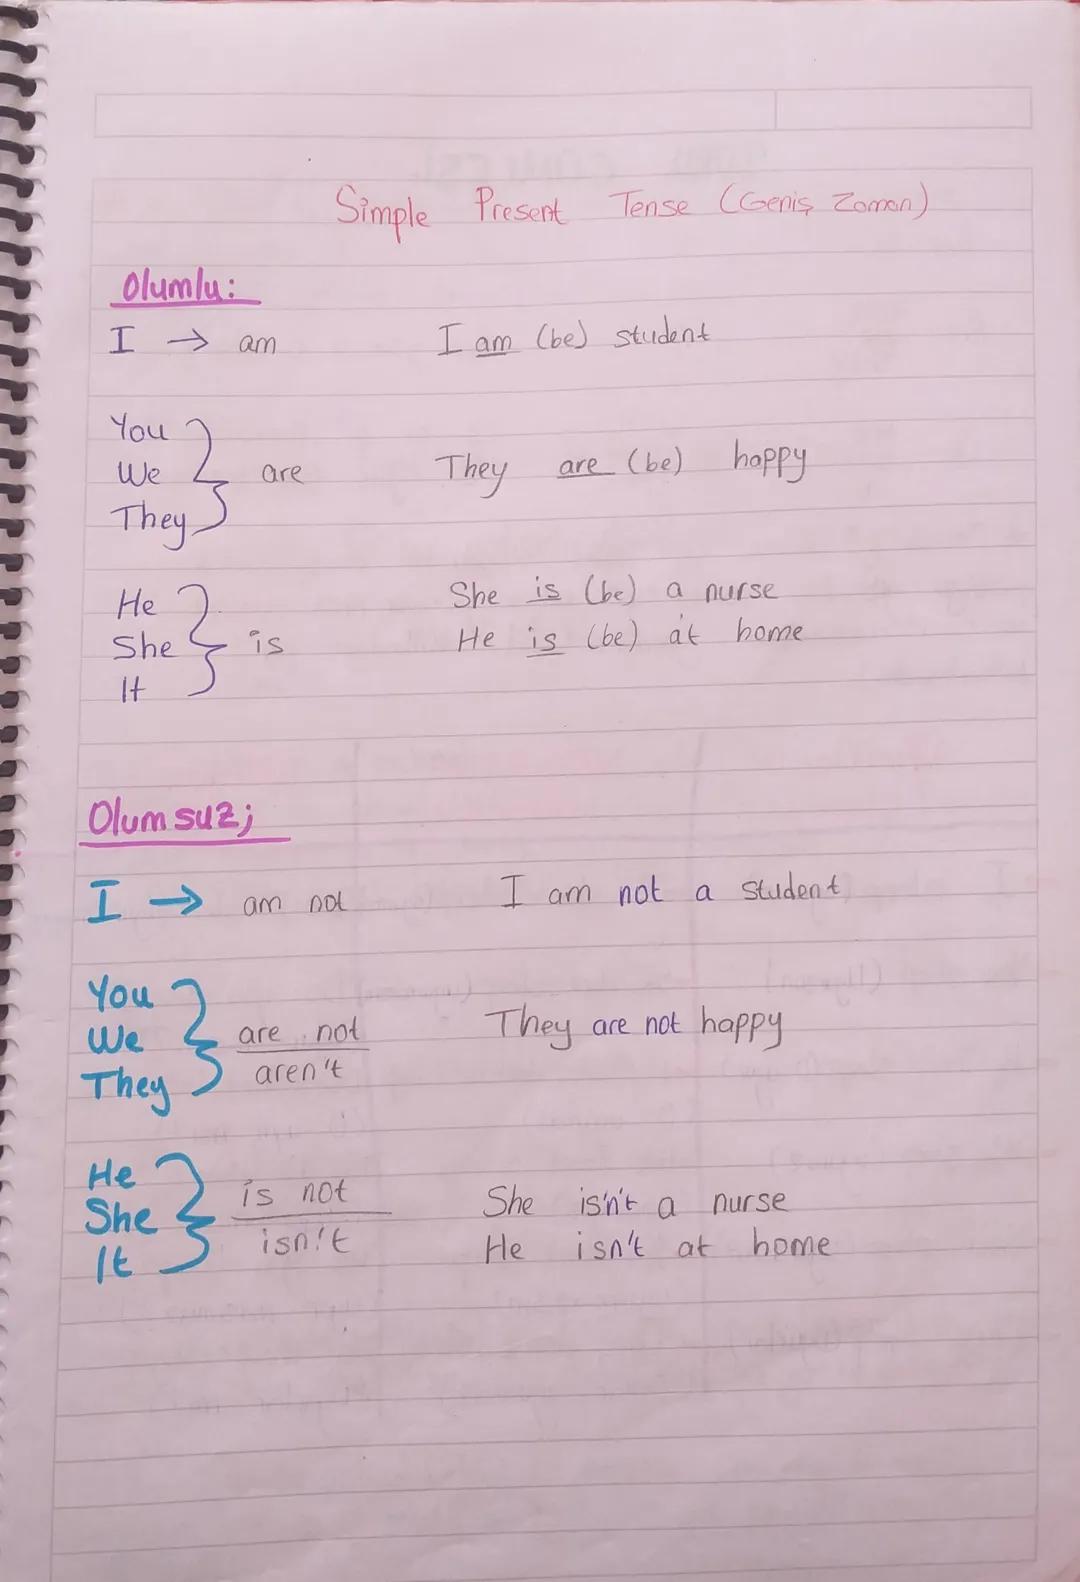 Simple Present Tense (Geniş Zaman)
Olumlu:
I → am I am (be) student
You
We are They are (be) happy
They
He She is (be) a nurse
She is He is (be) at home
It
Olumsuz;
I → am not I am not a student
You
We are not They are not happy
They aren't
He is not She isn't a nurse
She isn't He isn't at home
It